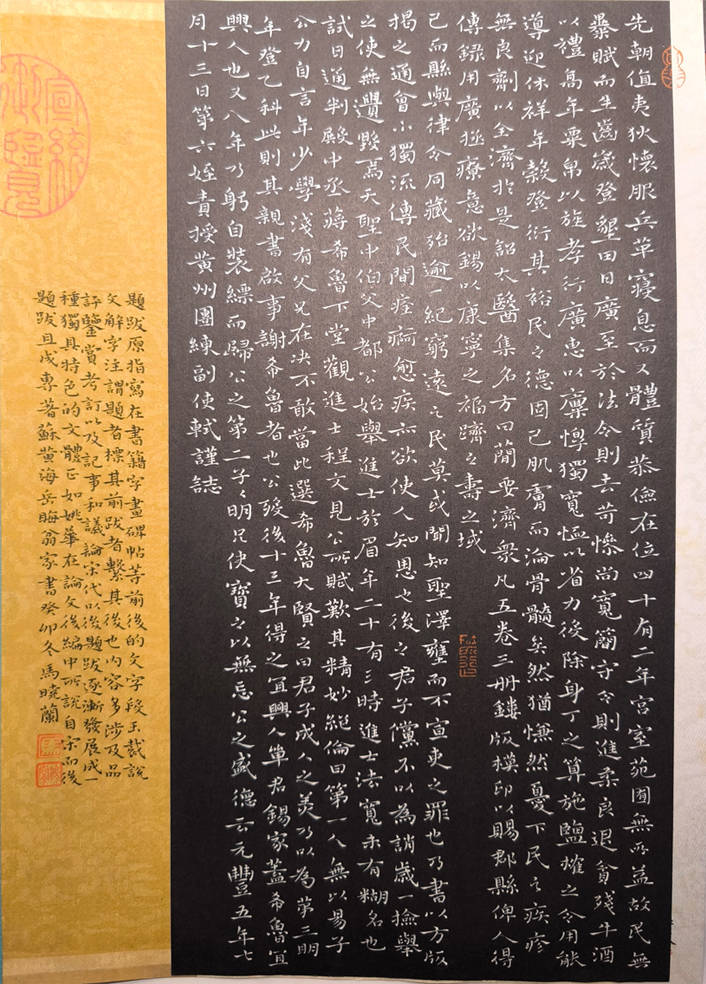 先朝值夷狄懷服兵革寢息而又體質恭儉在位四十有二年宮室苑囿無所益故民無
暴賦而生齒歲登墾田日廣至於法令則去苛慘尚寬簡守令則進柔良退貪殘牛酒
以禮高年粟帛以旌孝行廣惠以廩惸獨寬恤以省力後除身丁之算施鹽榷之令用能
導迎休祥年穀登衍其裕民之德固已肌膚而淪骨髓矣然猶慊然憂下民之疾疹
無良劑以全濟於是詔太醫集名方曰簡要濟衆凡五卷三册鏤版模印以賜郡縣俾人得
傳録用廣拯療意欲錫以康寧之福躋之壽之域
已而縣與律令同藏殆逾一紀窮遠之民莫或聞知聖澤壅而不宣吏之罪也乃書以方版
揭之通會小獨流傳民間痊痾愈疾亦欲使人知恩也後之君子儻不以為誚歲一撿舉
之使無遺毀焉天聖中伯父中都公始舉進士於眉年二十有三時進士法寬未有糊名也
試日通判殿中丞蔣希魯下堂觀進士程文見公所賦歎其精妙絕倫曰第一人無以易子
公力自言年少學淺有父兄在决不敢當此選希魯大賢之曰君子成公之美乃以為第三明
年登乙科此則其親書啟事謝希魯者也公歿後十三年得之宜興人單君錫家蓋希魯宜
興人也又八年乃躬自裝縹而歸公之第二子子明兄使寶之以無忘公之盛德云元豐五年七
月十三日第六姪責授黃州團練副使軾謹誌
宣統
御覽
題跋原指寫在書籍字畫碑帖等前後的文字段玉裁說
文解字注謂題者標其前跋者繫其後也內容多涉及品
評鑒賞考訂以及記事和議論宋代以後題跋逐漸發展成一
種獨具特色的文體正如姚華在論文後編中所說自宋而後
題跋且成專著蘇黃海岳晦翁家書癸卯冬馬曉蘭